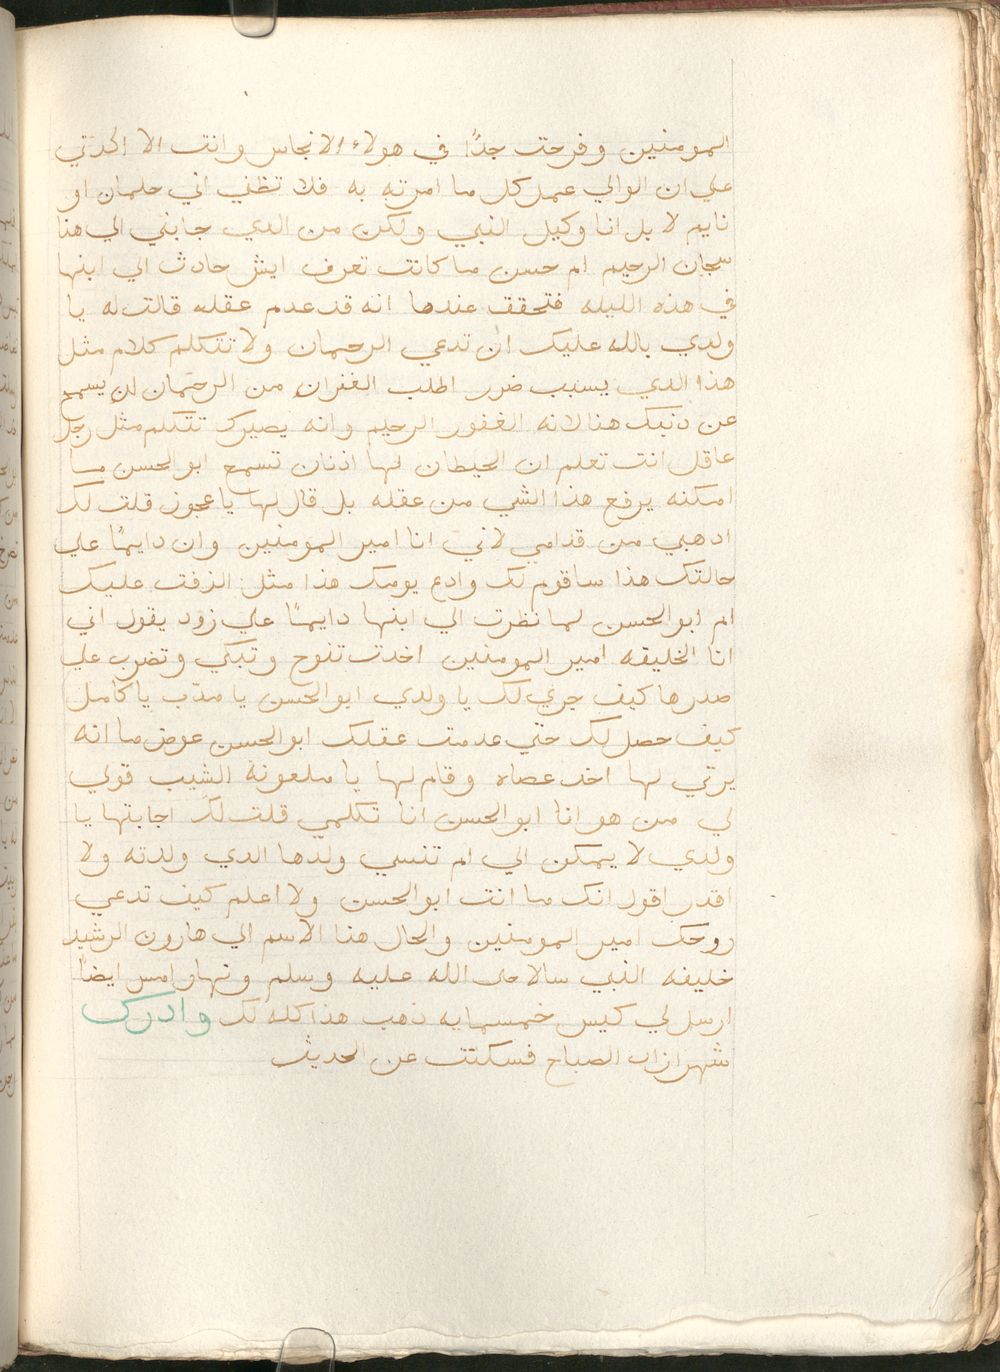 المومنين وفرحت جدًا في هولاء الانجاس وانت الا اكدتي
علي ان الوالي عمل كل ما امرته به فلا تظني اني حلمان او
نايم لا بل انا وكيل النبي ولكن من الدي جابني الي هنا
سبحان الرحيم ام حسن ما كانت تعرف ايش حادث الي ابنها
في هذه الليله فتحقق عندها انه قد عدم عقله قالت له يا
ولدي بالله عليك ان تدعي الرحمان ولا تتكلم كلام مثل
هذا الدي يسبب ضرر اطلب الغفران من الرحمان لان يسمح
عن دنبك هنا لانه الغفور الرحيم وانه يصيرك تتكلم مثل رجل
عاقل انت تعلم ان الحيطان لها اذنان تسمع ابو الحسن ما
امكنه يرفع هذا الشي من عقله بل قال لها يا عجوز قلت لك
ادهبي من قدامي لاني انا امير المومنين وان دايمًا علي
حالتك هذا ساقوم لك وادع يومك هذا مثل الزفت عليك
ام ابو الحسن لما نظرت الي ابنها دايمًا علي زود يقول اني
انا الخليفه امير المومنين اخدت تنوح وتبكي وتضرب علي
صدرها كيف جري لك يا ولدي ابو الحسن يا مدّب يا كامل
كيف حصل لك حتي عدمت عقلك ابو الحسن عوض ما انه
يرتي لها اخد عصاه وقام لها يا ملعونة الشيب قولي
لي من هو انا ابو الحسن انا تكلمي قلت لك اجابتها يا
ولدي لا يمكن الي ام تنسي ولدها الدي ولدته ولا
اقدر اقول انك ما انت ابو الحسن ولا اعلم كيف تدعي
روحك امير المومنين والحال هنا الاسم الي هارون الرشيد
خليفه النبي سالا صلي الله عليه وسلم ونهار امس ايضًا
ارسل لي كيس خمسمايه ذهب هذا كله لك وادرك
شهرازاد الصباح فسكتت عن الحديث